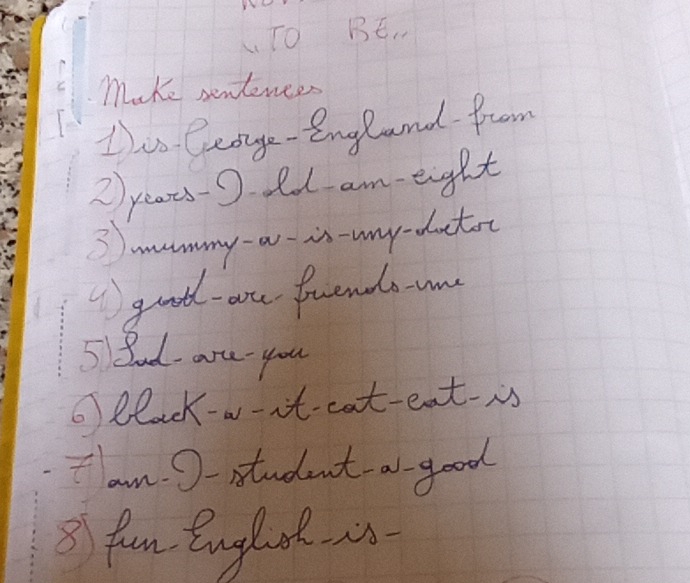 "TO BE"
Make sentences
1) is-George-England-from
2) years-I-old-am-eight
3) mummy-a-is-my-doctor
4) good-are-friends-we
5) Sad-are-you
6) black-a-it-cat-cat-is
7) am-I-student-a-good
8) fun-English-is-